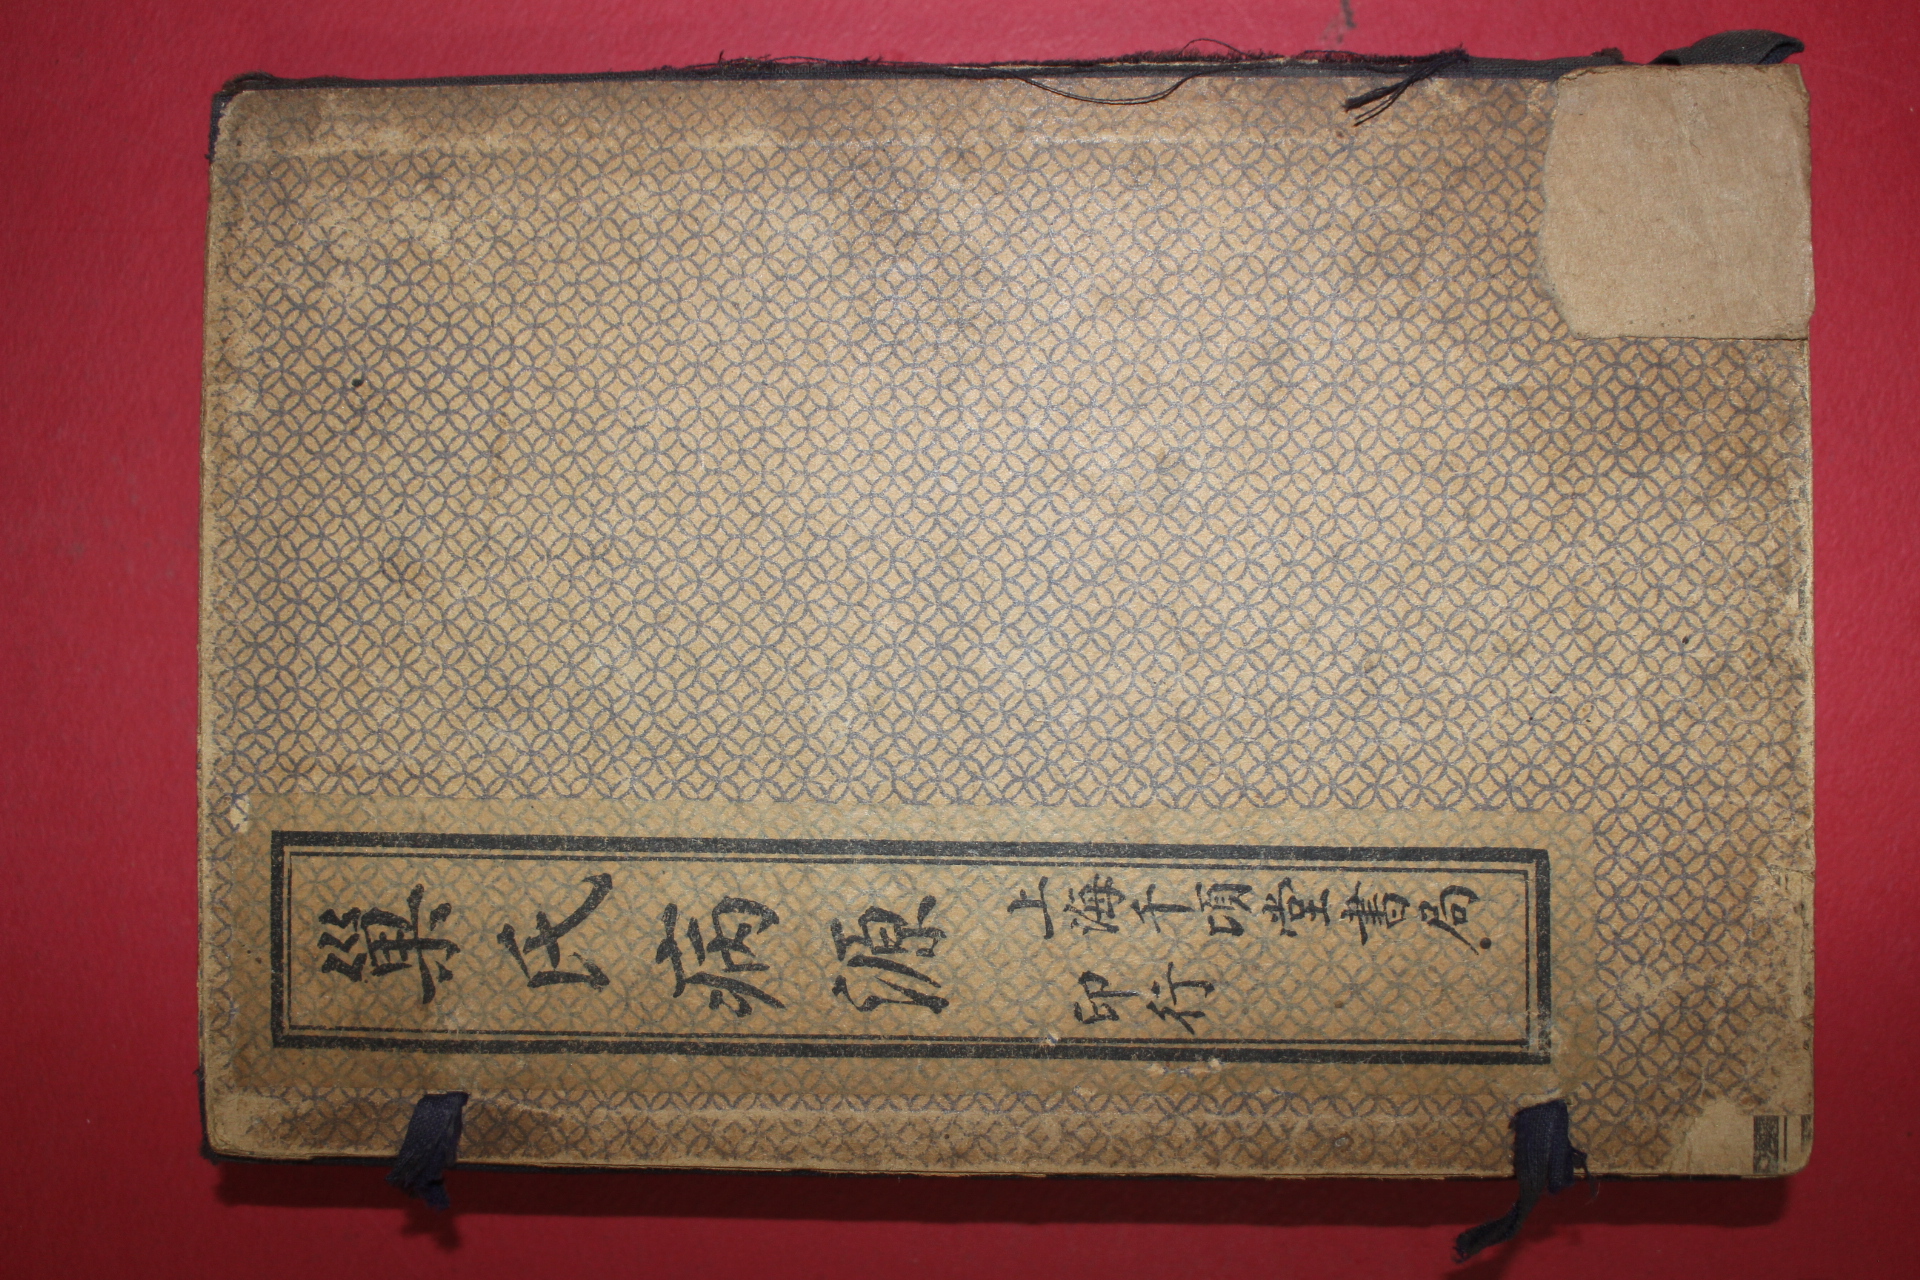 巢氏病源
上海千頃堂書局
印行